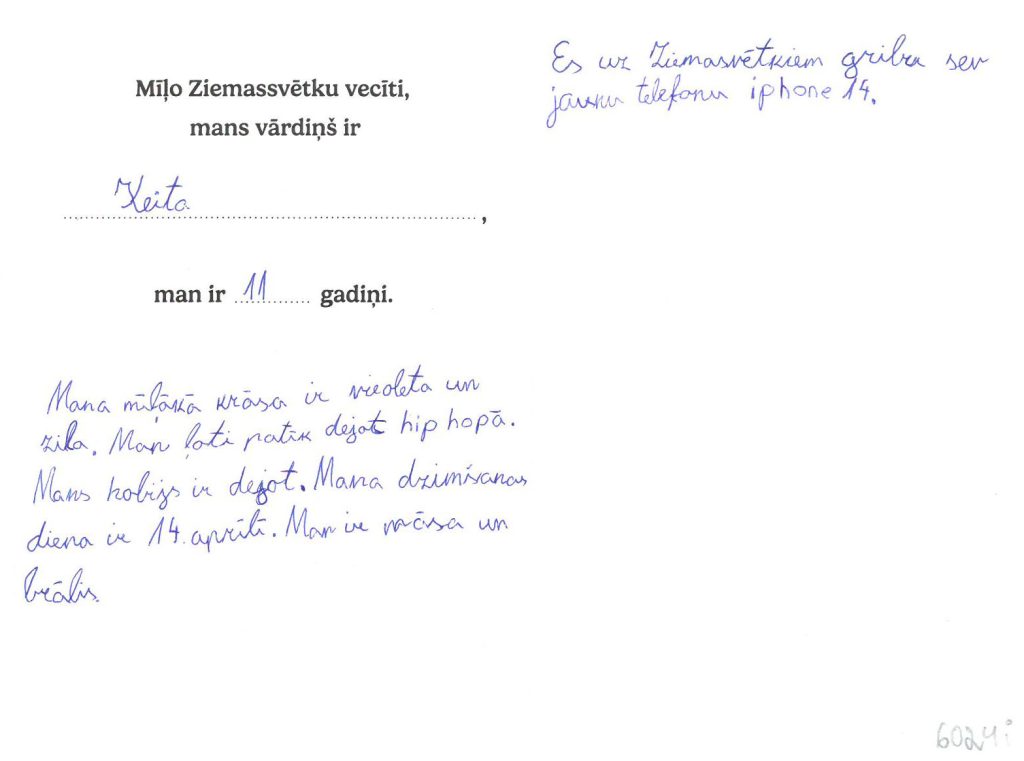 Mīļo Ziemassvētku vecīti,
mans vārdiņš ir
Keita,
man ir 11 gadiņi.
Mana mīļākā krāsa ir vieoleta un
zila. Man ļoti patīk dejot hip hopā.
Mans hobijs ir dejot. Mana dzimšanas
diena ir 14. aprīlī. Man ir māsa un
brālis.
Es uz Ziemasvētkiem gribu sev
jaunu telefonu iphone 14.
6024i